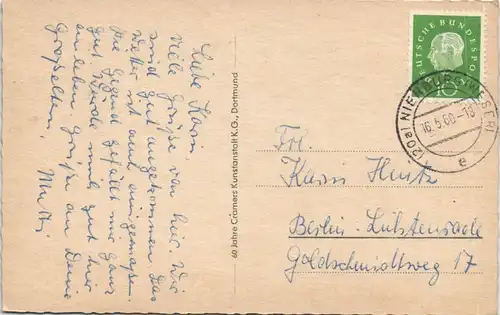 Liebe Karin,
Viele Grüße von hier. Wir
sind gut angekommen. Das
Wetter ist auch einigermaßen.
Die Gegend gefällt mir ganz
gut. Würde mal gut hier
erleben. Grüße an Deine
Großeltern,
Mutti
60 Jahre Cramers Kunstanstalt K.G., Dortmund
DEUTSCHE BUNDESPOST
10
(20a) NIENBURG (WESER)
16.5.60-18
e
Frl.
Karin Hentz
Berlin-Lichtenrade
Goldschmidtweg 17